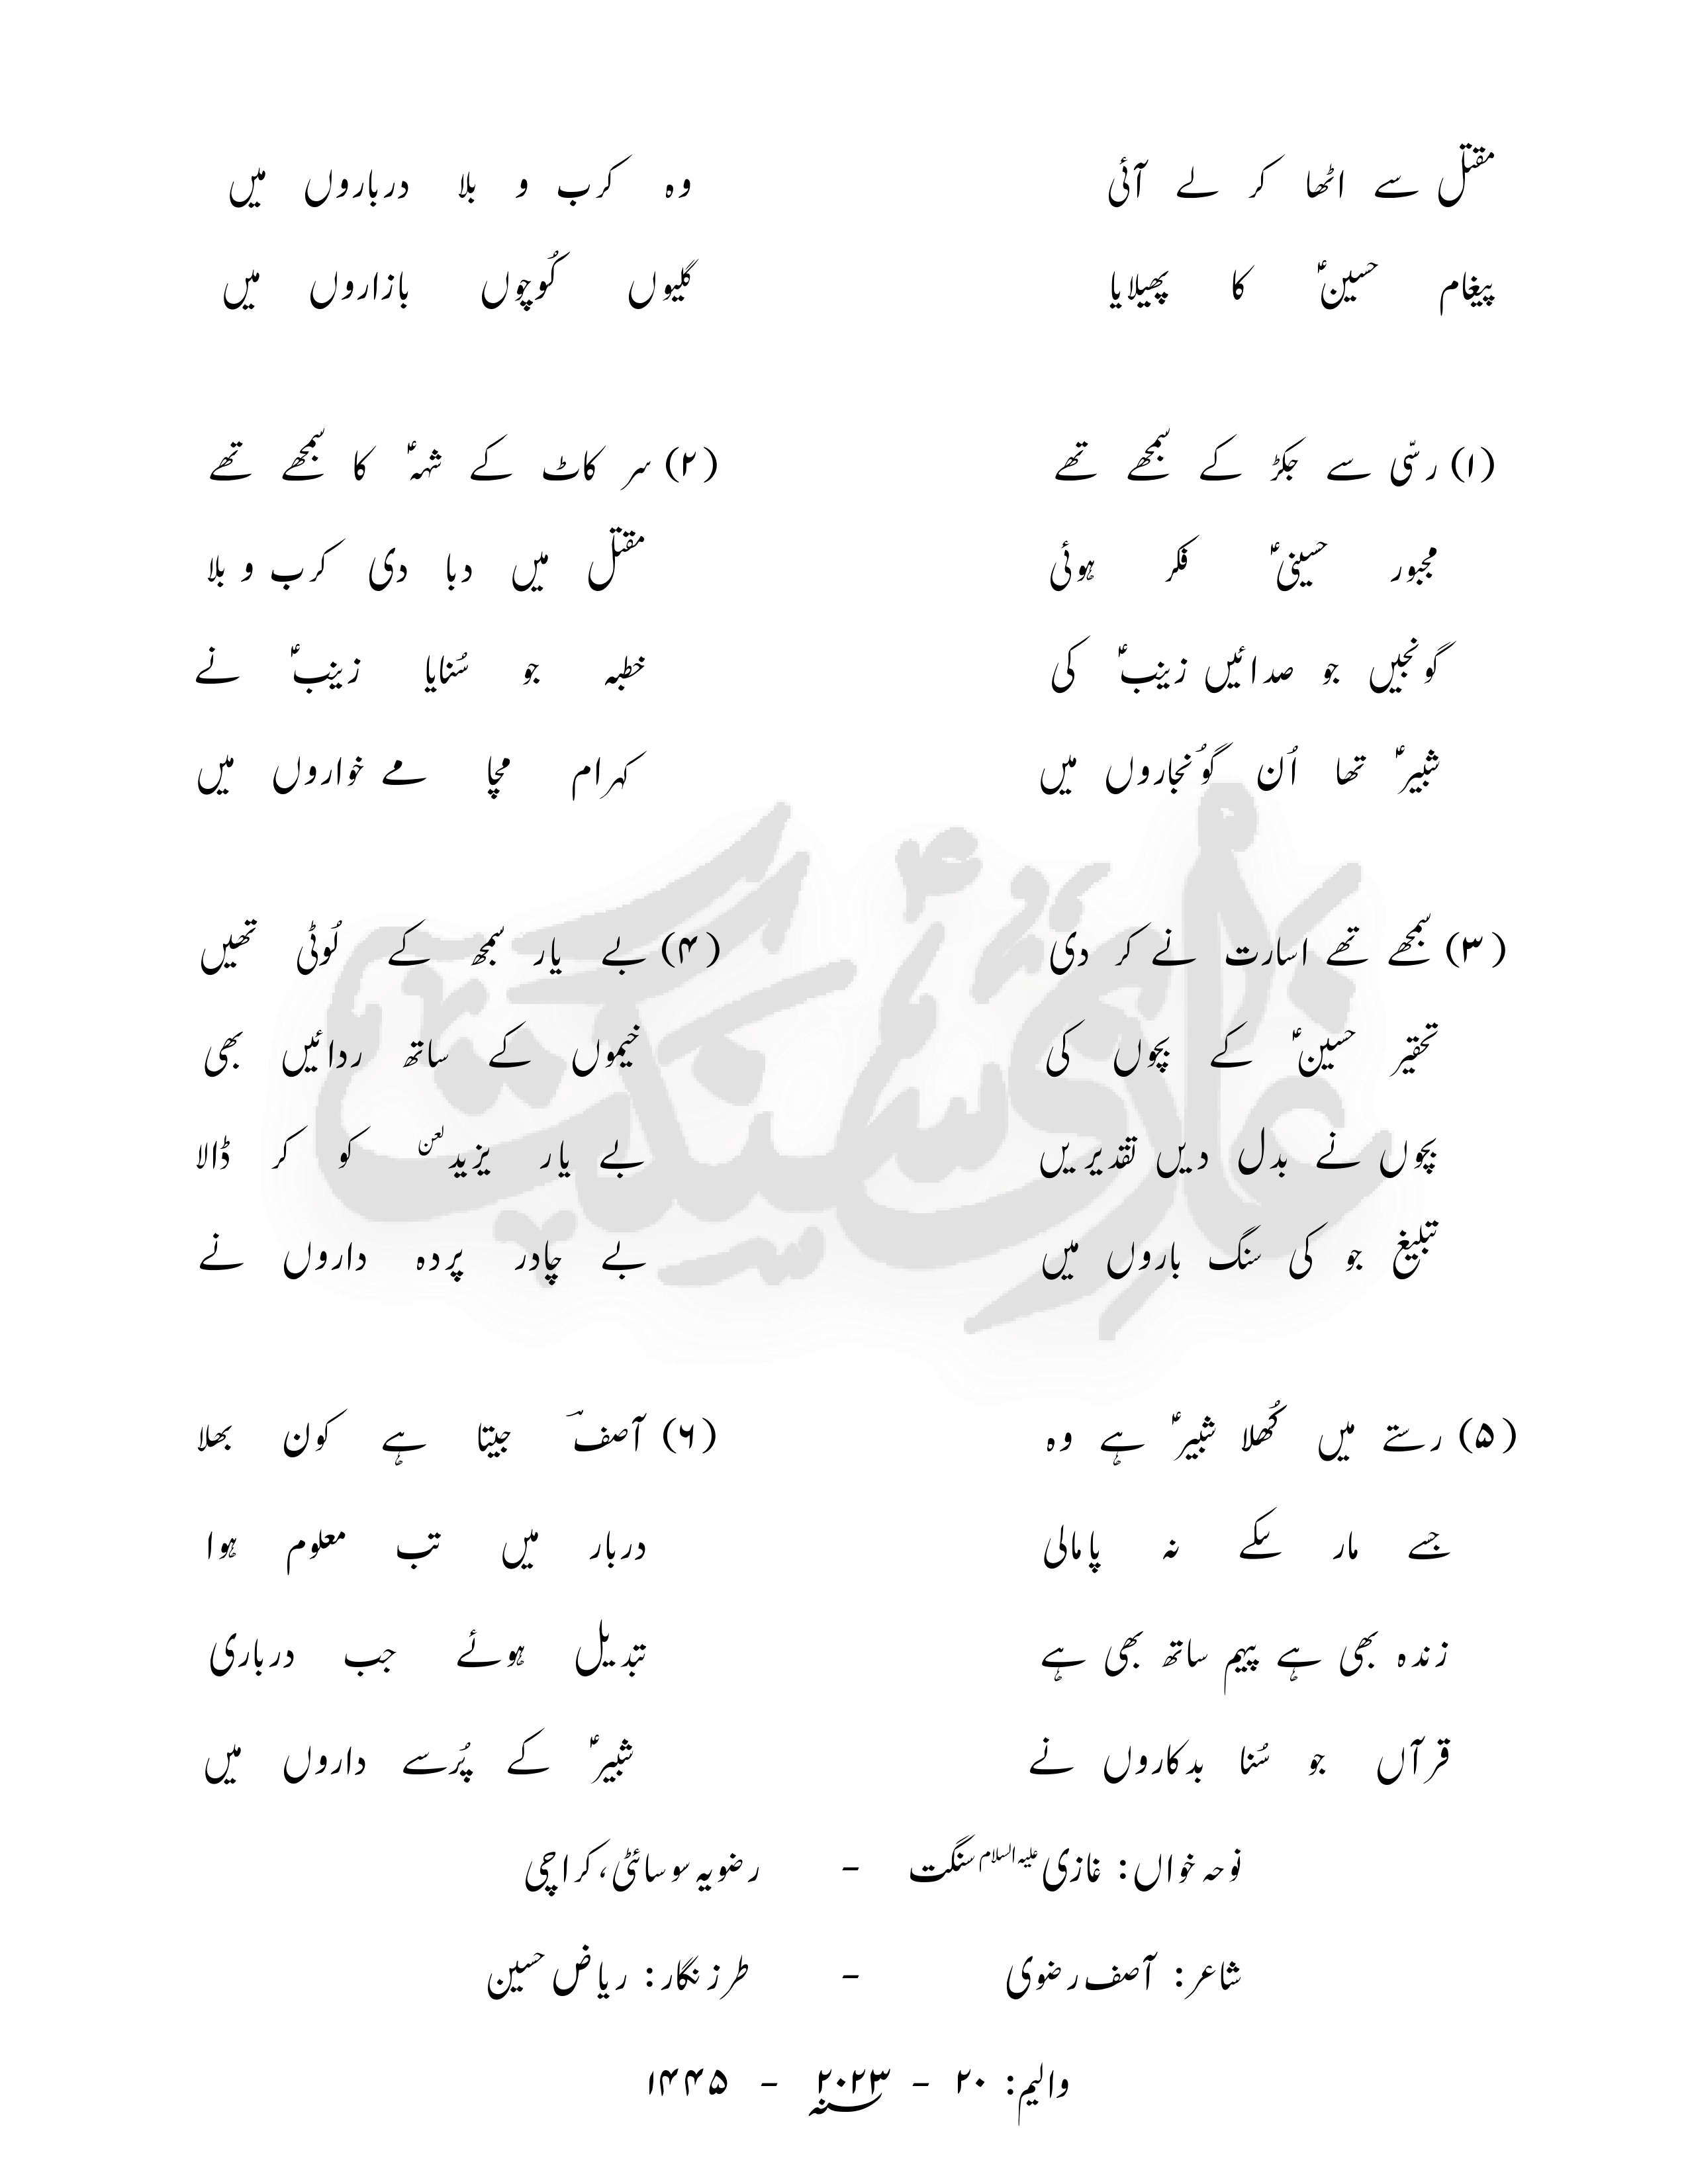 مقتل سے اٹھا کر لے آئی وہ کرب و بلا درباروں میں
پیغام حسینؑ کا پھیلایا گلیوں کُوچوں بازاروں میں
(۱) رسّی سے جکڑ کے سمجھے تھے
مجبور حسینیؑ فکر ہوئی
گونجیں جو صدائیں زینبؑ کی
شبیرؑ تھا اُن گوُنجاروں میں
(۲) سر کاٹ کے شہہؑ کا سمجھے تھے
مقتل میں دبا دی کرب و بلا
خطبہ جو سُنایا زینبؑ نے
کہرام مچا مے خواروں میں
(۳) سمجھے تھے اسارت نے کر دی
تحقیر حسینؑ کے بچوں کی
بچوں نے بدل دیں تقدیریں
تبلیغ جو کی سنگ باروں میں
(۴) بے یار سمجھ کے لُوٹی تھیں
خیموں کے ساتھ ردائیں بھی
بے یار یزید لعن کو کر ڈالا
بے چادر پردہ داروں نے
(۵) رستے میں کُھلا شبیرؑ ہے وہ
جسے مار سکے نہ پامالی
زندہ بھی ہے پیہم ساتھ بھی ہے
قرآں جو سُنا بدکاروں نے
(۶) آصفؔ جیتا ہے کون بھلا
دربار میں تب معلوم ہوا
تبدیل ہوئے جب درباری
شبیرؑ کے پُرسے داروں میں
نوحہ خواں: غازی علیہ السلام سنگت - رضویہ سوسائٹی، کراچی
شاعر: آصف رضوی - طرز نگار: ریاض حسین
والیم: ۲۰ - ۲۰۲۳؁ - ۱۴۴۵
غازیؑ سنگت